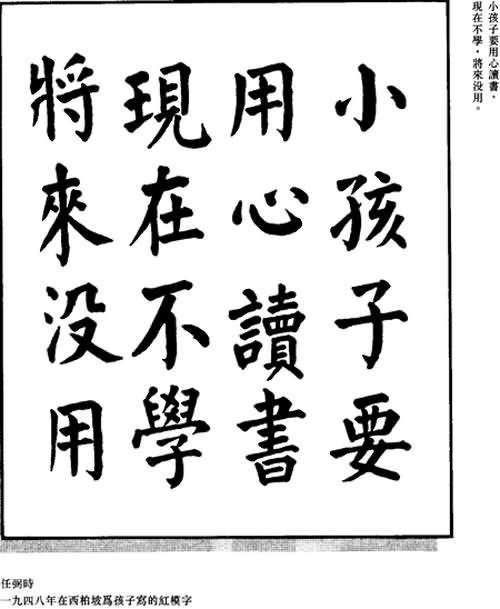 小孩子要
用心讀書
現在不學
將來没用
小孩子要用心讀書，
現在不學，將來没用。
任弼時
一九四八年在西柏坡爲孩子寫的紅模字